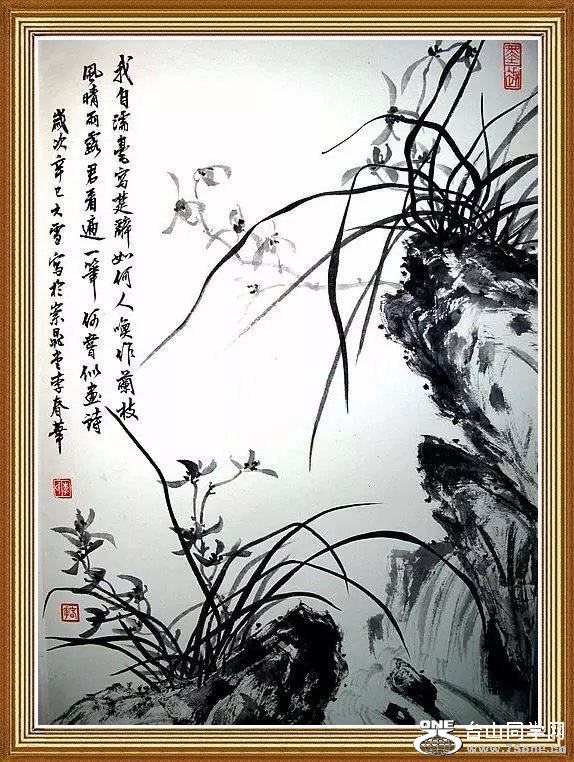 我自濡毫寫楚辭如何人喚作蘭枝
風晴雨露君看遍一筆何嘗似畫詩
歲次辛巳大雪寫於崇堂李春華
ONE
台山同学网